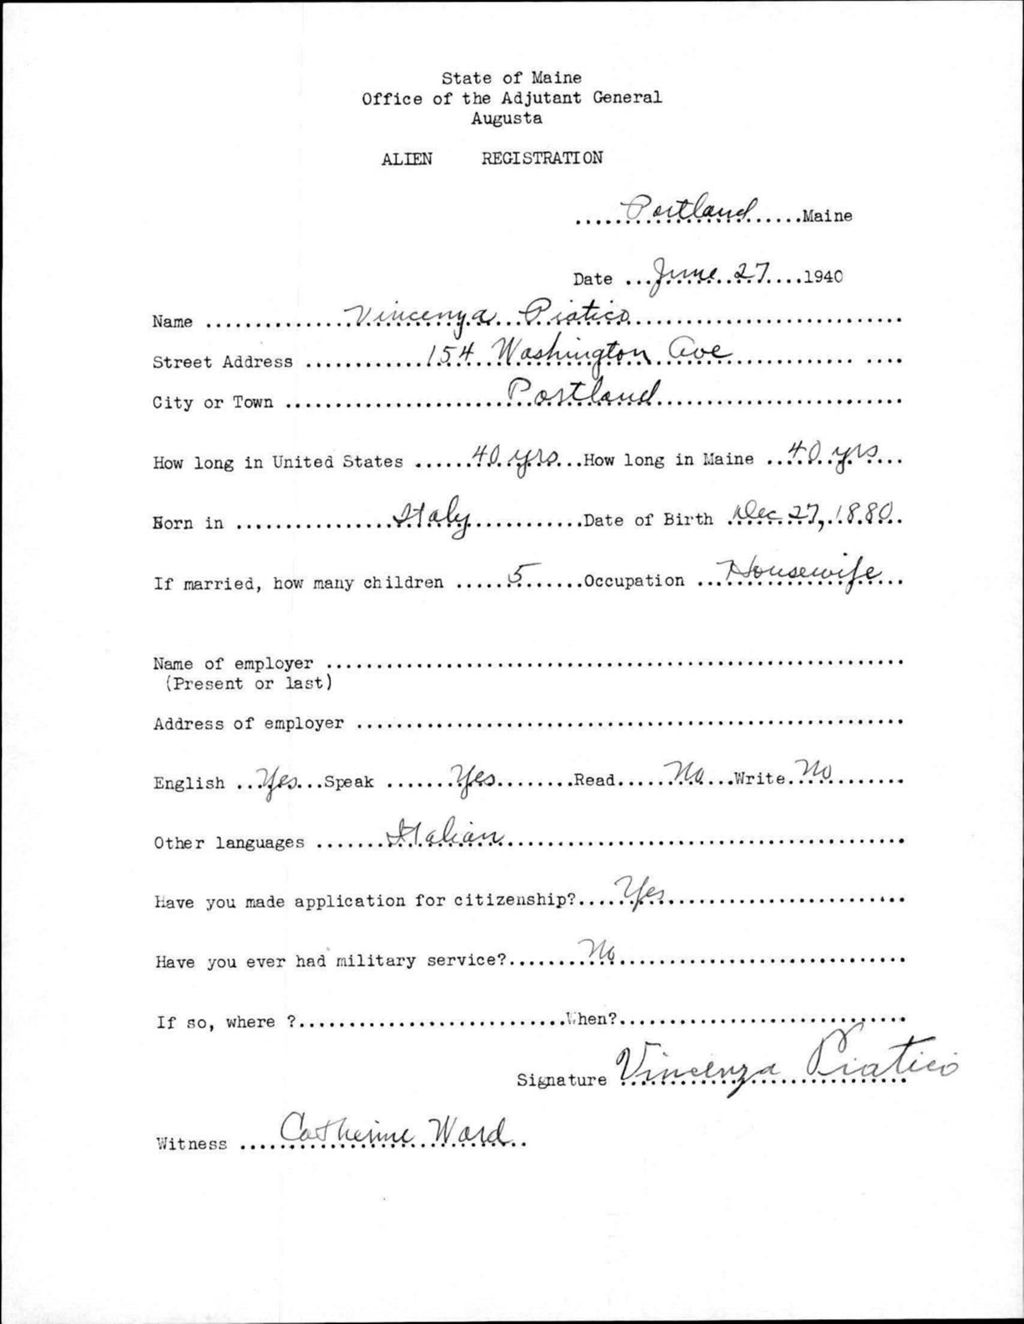 State of Maine
Office of the Adjutant General
Augusta
ALIEN REGISTRATION
.....Portland......Maine
Date ...June 27....1940
Name ...............Vincenza Piatico..........................
Street Address ............154 Washington Ave................ ....
City or Town ......................Portland........................
How long in United States ......40 yrs...How long in Maine ..40 yrs...
Born in ................Italy...........Date of Birth .Dec. 27, 1880..
If married, how many children .....5.......Occupation ...Housewife...
Name of employer ..........................................................
(Present or last)
Address of employer .......................................................
English ..Yes...Speak .......Yes.........Read.....No...Write.No........
Other languages .......Italian........................................
Have you made application for citizenship?.....Yes........................
Have you ever had military service?.......No.............................
If so, where ?...........................When?.............................
Signature Vincenza Piatico
Witness ....Catherine Ward..